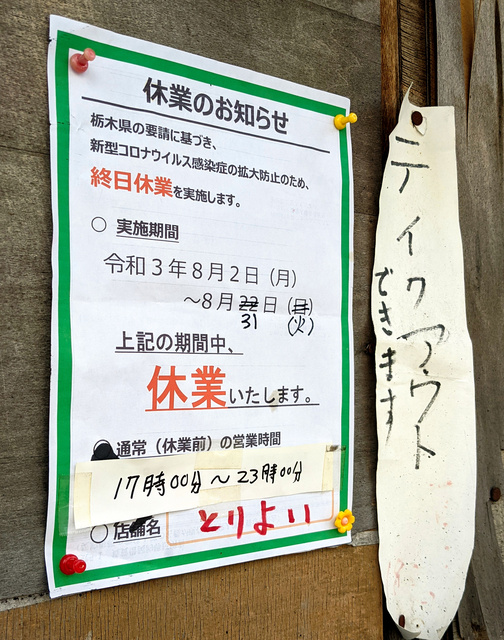 休業のお知らせ
栃木県の要請に基づき、
新型コロナウイルス感染症の拡大防止のため、
終日休業を実施します。
○ 実施期間
令和3年8月2日（月）
～8月22日（日）
31 （火）
上記の期間中、
休業いたします。
通常（休業前）の営業時間
17時00分～23時00分
○ 店舗名
とりよい
テイクアウト
できます